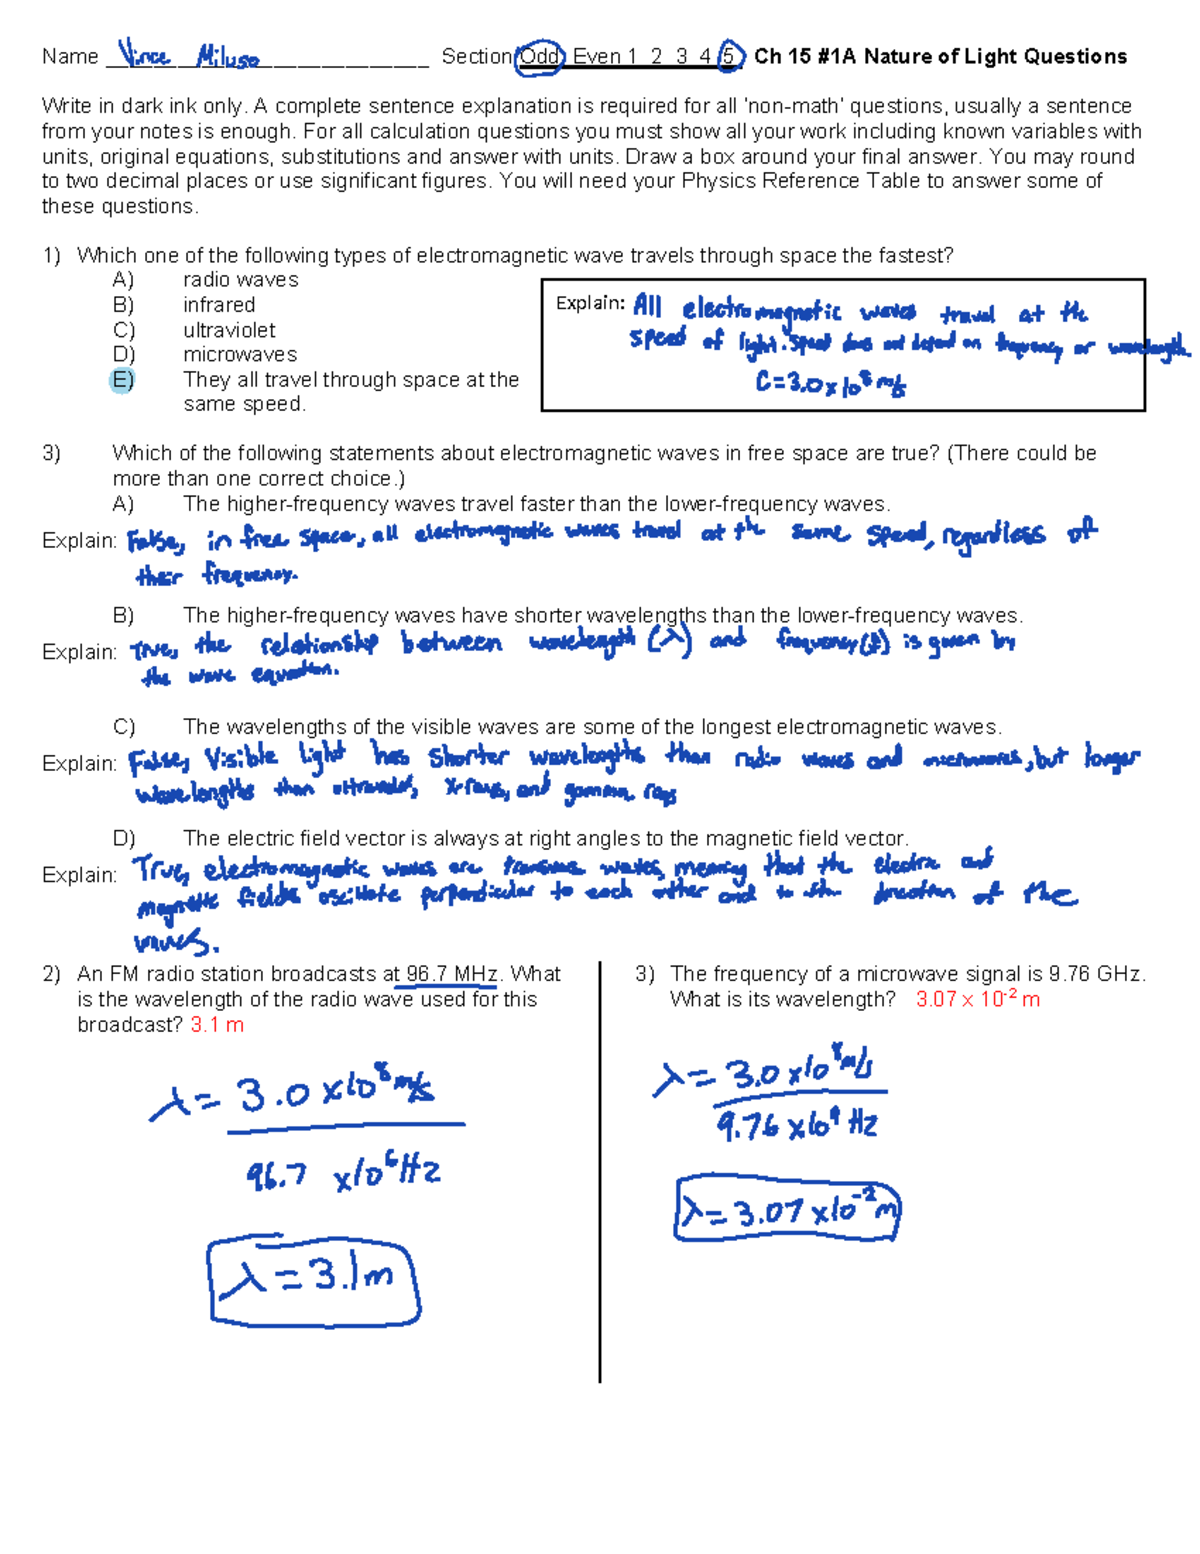 Name Vince Miluso Section Odd Even 1 2 3 4 5 Ch 15 #1A Nature of Light Questions
Write in dark ink only. A complete sentence explanation is required for all 'non-math' questions, usually a sentence
from your notes is enough. For all calculation questions you must show all your work including known variables with
units, original equations, substitutions and answer with units. Draw a box around your final answer. You may round
to two decimal places or use significant figures. You will need your Physics Reference Table to answer some of
these questions.
1) Which one of the following types of electromagnetic wave travels through space the fastest?
A) radio waves
B) infrared
C) ultraviolet
D) microwaves
E) They all travel through space at the
same speed.
Explain: All electromagnetic waves travel at the
speed of light. Speed does not depend on frequency or wavelength.
C=3.0x10⁸ m/s
3) Which of the following statements about electromagnetic waves in free space are true? (There could be
more than one correct choice.)
A) The higher-frequency waves travel faster than the lower-frequency waves.
Explain: False, in free space, all electromagnetic waves travel at the same speed, regardless of
their frequency.
B) The higher-frequency waves have shorter wavelengths than the lower-frequency waves.
Explain: True, the relationship between wavelength (λ) and frequency (f) is given by
the wave equation.
C) The wavelengths of the visible waves are some of the longest electromagnetic waves.
Explain: False, Visible light has shorter wavelengths than radio waves and microwaves, but longer
wavelengths than ultraviolet, x-rays, and gamma rays
D) The electric field vector is always at right angles to the magnetic field vector.
Explain: True, electromagnetic waves are transverse waves, meaning that the electric and
magnetic fields oscillate perpendicular to each other and to the direction of the
waves.
2) An FM radio station broadcasts at 96.7 MHz. What
is the wavelength of the radio wave used for this
broadcast? 3.1 m
λ = 3.0 x10⁸ m/s
96.7 x10⁶ Hz
λ = 3.1m
3) The frequency of a microwave signal is 9.76 GHz.
What is its wavelength? 3.07 x 10⁻² m
λ = 3.0 x10⁸ m/s
9.76 x10⁹ Hz
λ = 3.07 x10⁻² m